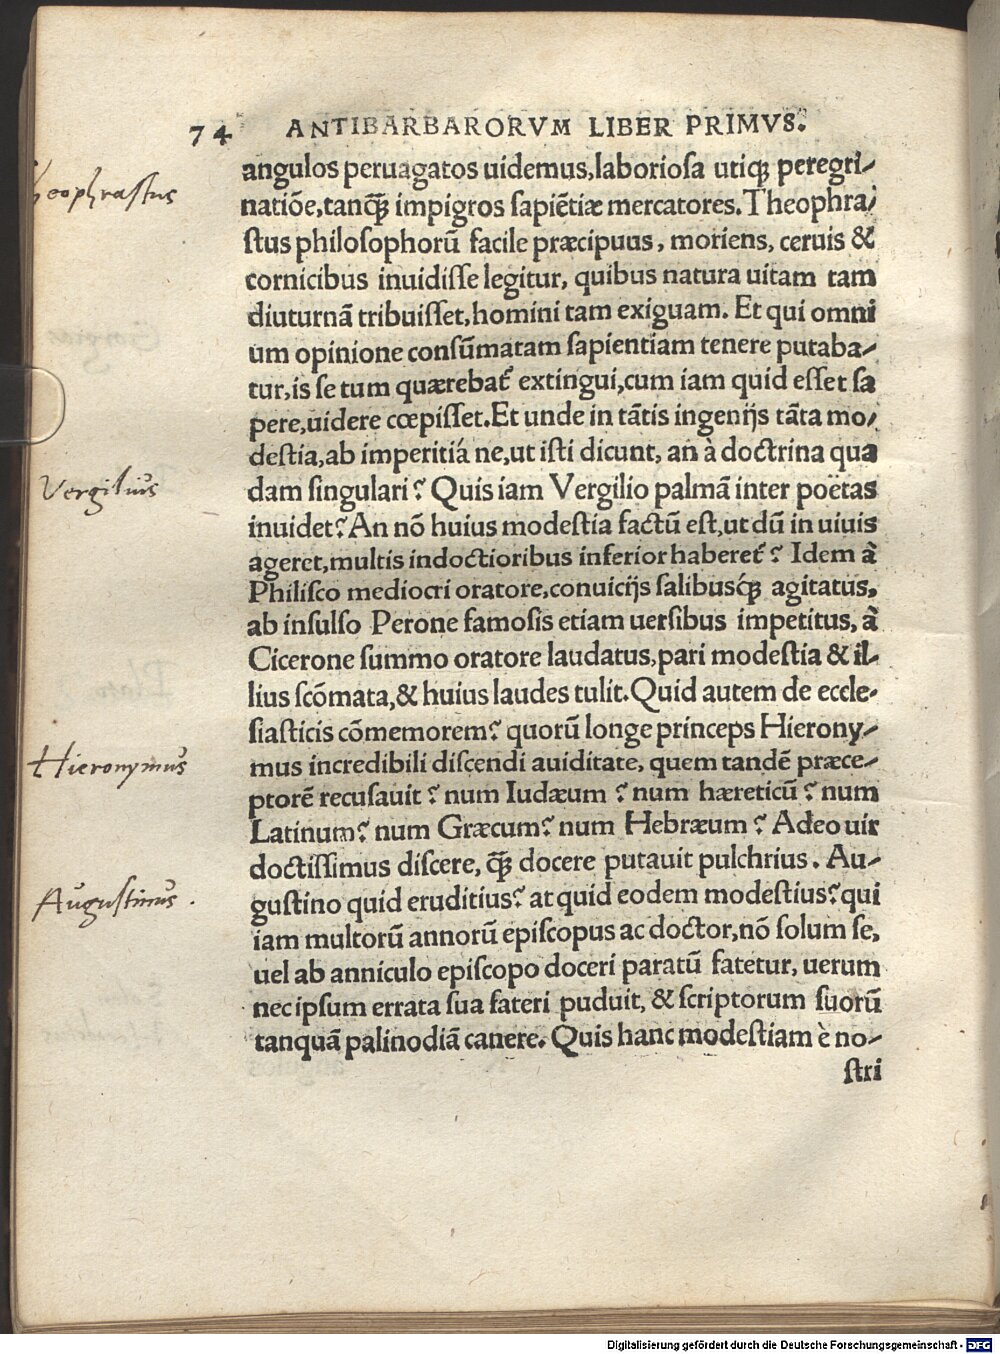 74 ANTIBARBARORVM LIBER PRIMVS.
anguloſ peruagatos uidemus, laborioſa utiqꝫ peregri-
natiōe, tanqꝫ̄ impigros ſapiētiæ mercatores. Theophra-
ſtus philoſophorū facile præcipuus, moriens, ceruis &
cornicibus inuidiſſe legitur, quibus natura uitam tam
diuturnā tribuiſſet, homini tam exiguam. Et qui omni
um opinione conſūmatam ſapientiam tenere putaba-
tur, is ſe tum quærebat᷑ extingui, cum iam quid eſſet ſa
pere, uidere cœpiſſet. Et unde in tātis ingenijs tāta mo-
deſtia, ab imperitiá ne, ut iſti dicunt, an à doctrina qua
dam ſingulari? Quis iam Vergilio palmā inter poëtas
inuidet? An nō huius modeſtia factū eſt, ut dū in uiuis
ageret, multis indoctioribus inferior haberet᷑? Idem à
Philiſco mediocri oratore, conuicijs ſalibusqꝫ́ agitatus,
ab inſulſo Perone famoſis etiam uerſibus impetitus, à
Cicerone ſummo oratore laudatus, pari modeſtia & il-
lius ſcōmata, & huius laudes tulit. Quid autem de eccle-
ſiaſticis cōmemorem? quorū longe princeps Hierony-
mus incredibili diſcendi auiditate, quem tandē præce-
ptorē recuſauit? num Iudæum? num hæreticū? num
Latinum? num Græcum? num Hebræum? Adeo uir
doctiſſimus diſcere, qꝫ̄ docere putauit pulchrius. Au-
guſtino quid eruditius? at quid eodem modeſtius? qui
iam multorū annorū epiſcopus ac doctor, nō ſolum ſe,
uel ab anniculo epiſcopo doceri paratū fatetur, uerum
nec ipſum errata ſua fateri puduit, & ſcriptorum ſuorū
tanquā palinodiā canere. Quis hanc modeſtiam è no-
ſtri
heophrastus
Vergilius
Hieronymus
Augustinus.
Digitalisierung gefördert durch die Deutsche Forschungsgemeinschaft - DFG